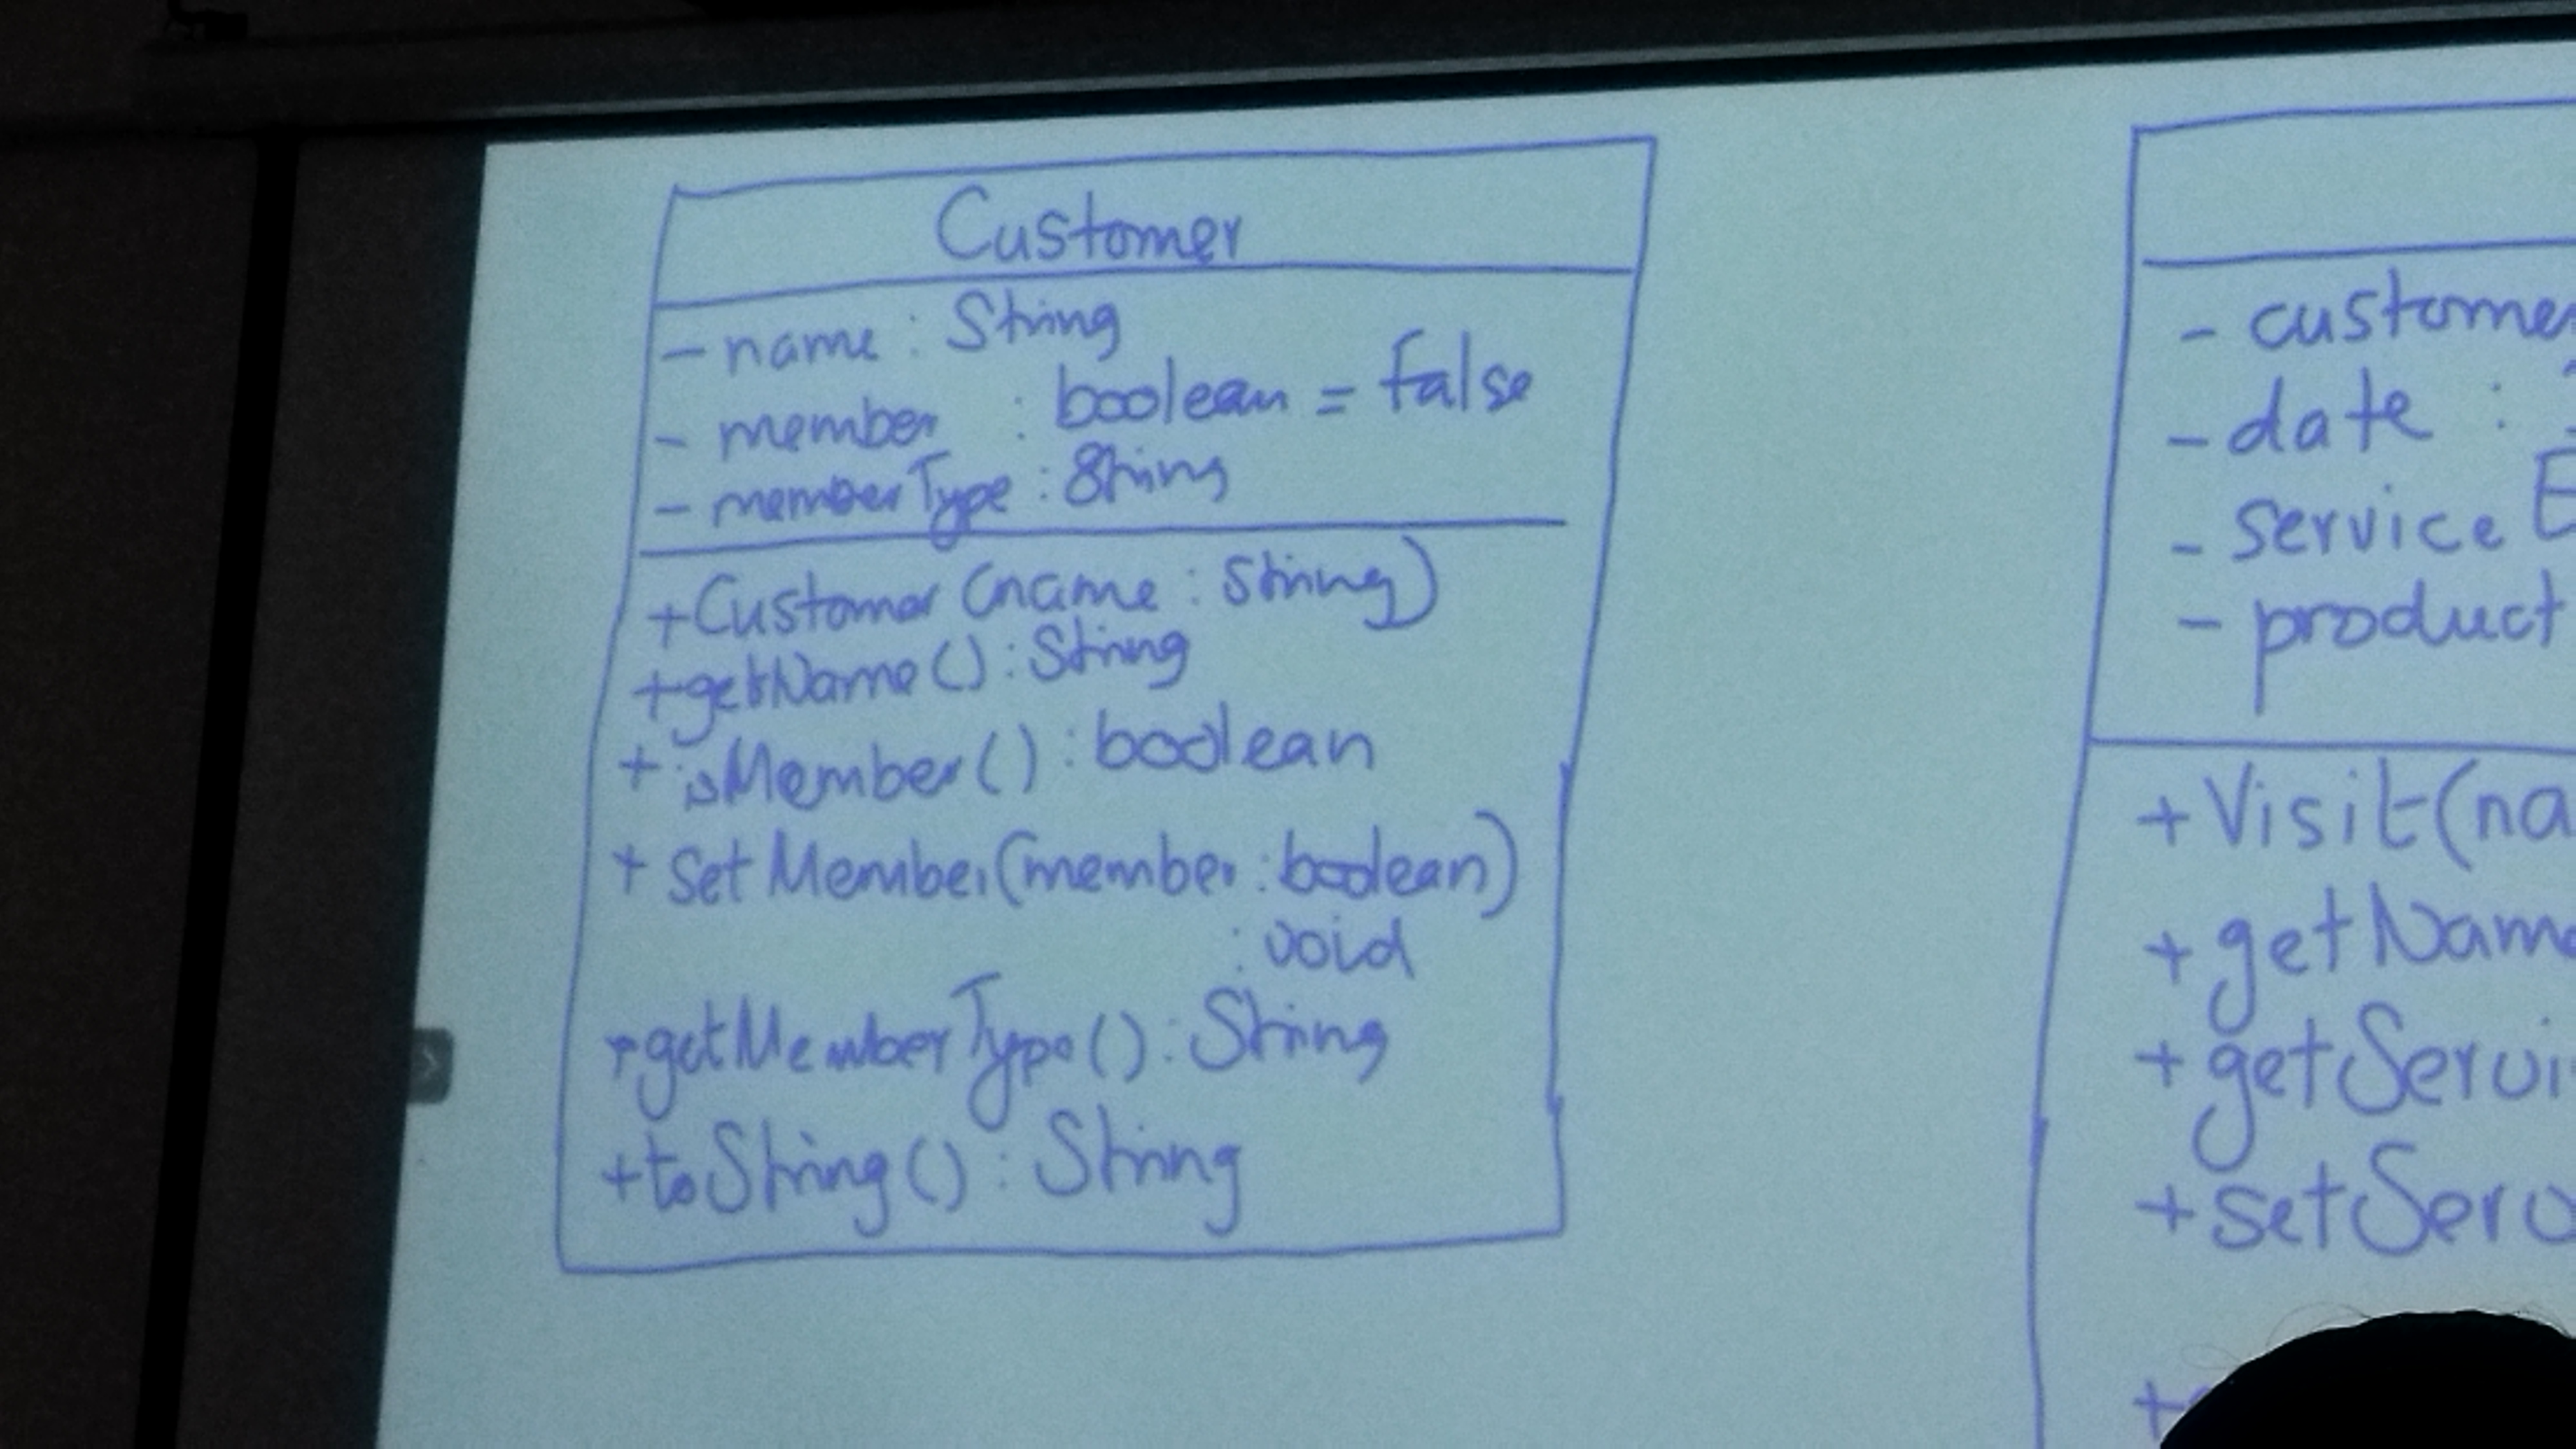 Customer
- name : String
- member : boolean = false
- memberType : String
+ Customer (name : String)
+ getName () : String
+ isMember () : boolean
+ setMember(member : boolean)
: void
+ getMemberType () : String
+ toString () : String
- customer
- date :
- service E
- product
+ Visit(na
+ getName
+ getServi
+ setServ
+